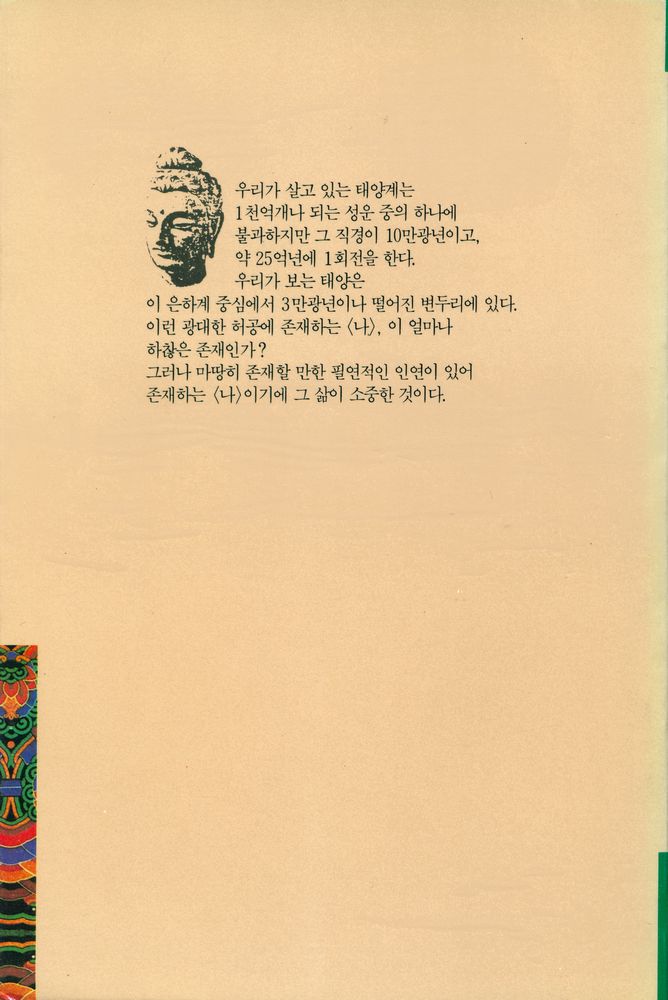 우리가 살고 있는 태양계는
1천억개나 되는 성운 중의 하나에
불과하지만 그 직경이 10만광년이고,
약 25억년에 1회전을 한다.
우리가 보는 태양은
이 은하계 중심에서 3만광년이나 떨어진 변두리에 있다.
이런 광대한 허공에 존재하는 〈나〉, 이 얼마나
하찮은 존재인가?
그러나 마땅히 존재할 만한 필연적인 인연이 있어
존재하는 〈나〉이기에 그 삶이 소중한 것이다.